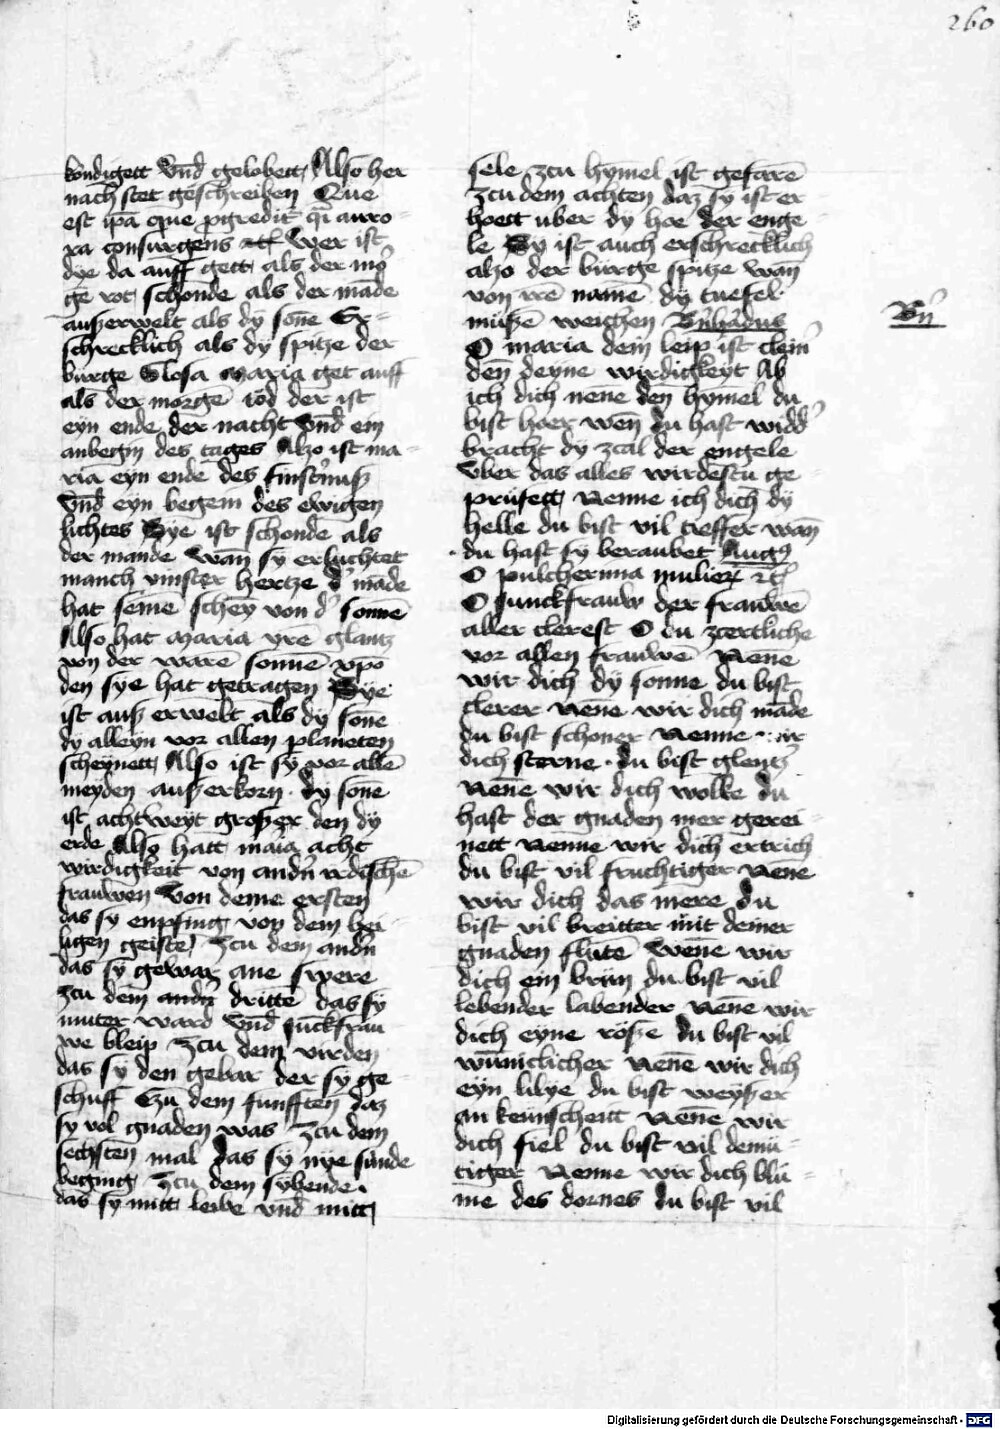 260
kondigett Vnd gelobett Also her
nach stet geschreiben Que
est ip̄a q̄ue p̱gredit̄ q̄i auro-
ra consurgens ꝛcꝭ Wer ist
dye da auff gett als der mor̄
gē rot schonde als der māde
auszerwelt als dÿ sōne Er-
schrecklich als dy spitze der
burge Glosa Maria get auff
als der morgē rod der ist
eyn ende der nacht Vnd ein
anbegin des tages Alzo ist ma-
ria eyn ende des finstʼnusz
Vnd eyn begein des ewigen
lichtes Sye ist schonde als
der mande Wan̄ sy erluchtet
manch vinster hertze dʼ māde
hat seinē schey von dʼ sonnē
Also hat Maria yre glantz
von der warē sonnē xp̄o
den sye hat getragen Sye
ist ausz erwelt als dÿ sōne
dÿ alleyn vor allen planeten
scheynett Also ist sÿ vor allē
meyden auszerkorn · dy sōne
ist achtweyt groszer den dÿ
erde Also hatt maia acht
wirdigkeit von andn̄ irdischē
frauwen Von deme ersten
das sy enpfing von dem hei-
ligen geiste Zcu dem andn̄
das sÿ gewar ane swere
zcu dem andn̄ drittē das sÿ
muter ward Vnd Junckfrau-
we bleip Zcu dem virden
das sÿ den gebar der sÿ ge-
schuff Czu dem funfften daz
sy vol gnaden was Zcu dem
sechsten mal das sÿ nÿe sunde
beging Zcu dem sybende
das sy mitt leibe vnd mitt
sele zcu hȳmel ist gefarē
Zcu dem achten daz sy ist er
hoett uber dy hoe der enge-
le Sy ist auch erschrecklich
alzo der burge spitze wan̄
von irē namē dÿ tuefel
müszē weichen Bʼnhʼdus
Bn̄
O maria dein leip ist cleinʼ
den̄ deyne wirdigkeyt Ab
ich dich nēne den hȳmel du
bist hoer wen̄ du hast widdʼ
bracht dy zcal der engele
Vber das alles wirdestu ge-
prüfett Nenne ich dich dÿ
helle du bist vil tieffer wan̄
du hast sÿ beraubet Augꝰ
O pulcherrima mulierꝝ ꝛcꝭ
O Junckfrauw der frauwē
aller clerest O du zcertliche
vor allen frauwē Nene
wir dich dÿ sonne du bist
clerer Nene wir dich māde
du bist schoner Nenne wir
dich sterne · du bist glentzʼ
Nēne wir dich wolke du
hast der gnaden mer gerei-
nett Nenne wir dich ertrich
du bist vil fruchtiger Nēne
wir dich das mere du
bist vil breitter mit deiner
gnaden flutē Wēne wir
dich ein brun du bist vil
lebender labender Nēne wir
dich eyne rösze du bist vil
wūniclicher Nēne wir dich
eyn lilye du bist weyszer
an keinscheitt Nēne wir
dich fiel du bist vil demü-
tiger Nenne wir dich blu-
me des dornes du bist vil
Digitalisierung gefördert durch die Deutsche Forschungsgemeinschaft - DFG